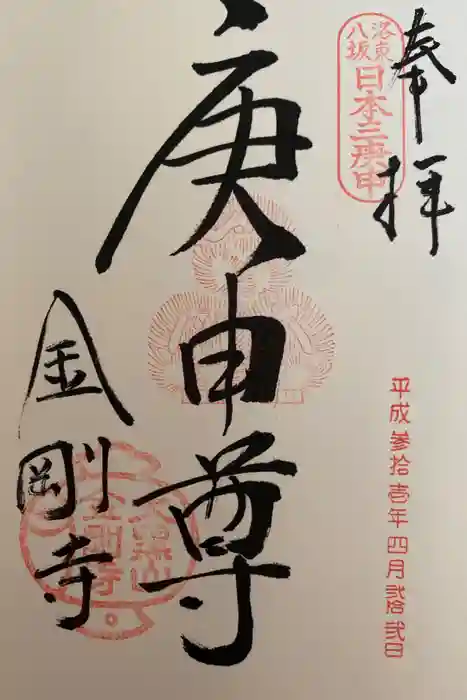 奉拝
洛東
八坂
日本三庚申
平成参拾壱年四月弐拾弐日
庚申尊
金剛寺
大黒山
金剛寺